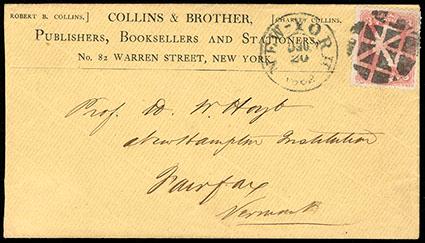 ROBERT B. COLLINS,] COLLINS & BROTHER, [CHARLEY COLLINS.
PUBLISHERS, BOOKSELLERS AND STATIONERS,
No. 82 WARREN STREET, NEW YORK.
NEW-YORK
20
Prof. D. W. Hoyt
New Hampton Institution
Fairfax
Vermont